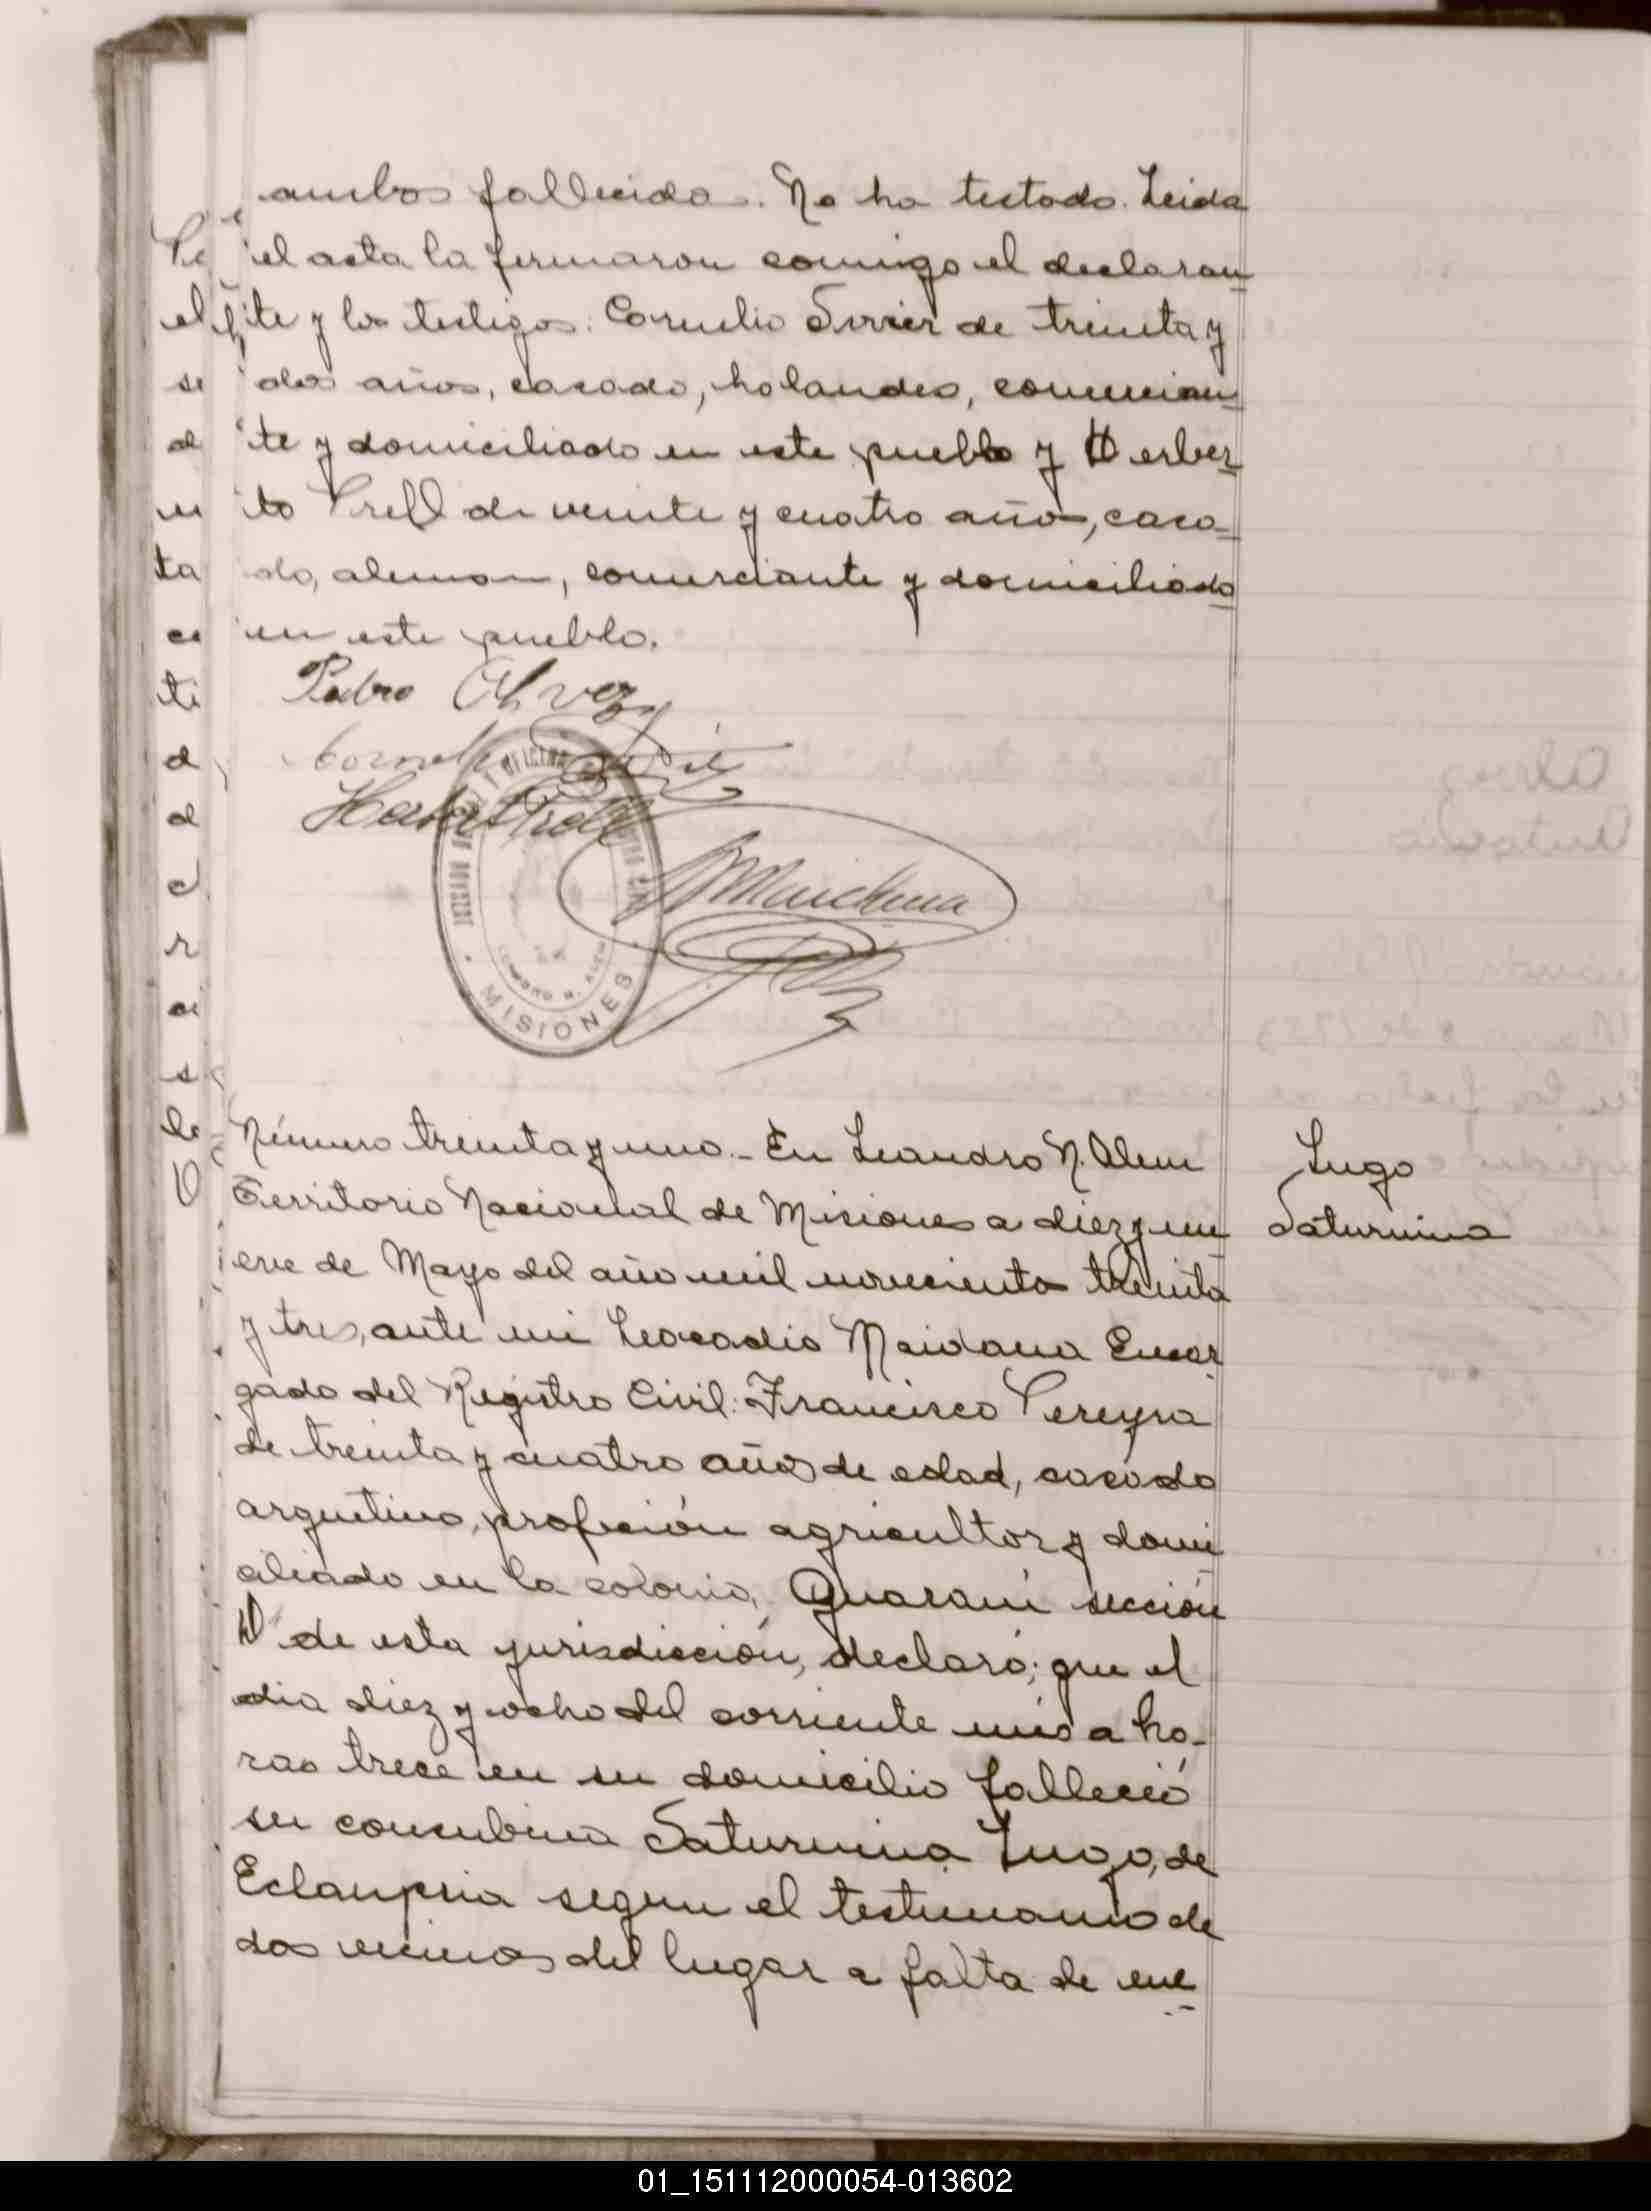 ambos fallecidos. No ha testado. Leida
el acta la firmaron comigo el declaran
te y los testigos: Cornelio de treinta y
dos años, casado, holandes, comercian
te y domiciliado en este pueblo y Herber
to Prell de veinte y cuatro años, casa
do, aleman, comerciante y domiciliado
en este pueblo.
Pedro Alvez
Herbert Prell
MISIONES
Número treinta y uno.- En Leandro N. Alem
Territorio Nacional de Misiones a diez y nu
eve de Mayo del año mil novecientos treinta
y tres, ante mi Leocadio Maidana Encar
gado del Registro Civil: Francisco Pereyra
de treinta y cuatro años de edad, casado
argentino, profesión agricultor y domi
ciliado en la colonia, Guaraní sección
de esta jurisdicción, declaró; que el
dia diez y ocho del corriente mes a ho-
ras trece en su domicilio falleció
su concubina Saturnina Lugo, de
Eclampsia segun el testimonio de
dos vecinos del lugar a falta de me
Lugo
Saturnina
01_151112000054-013602